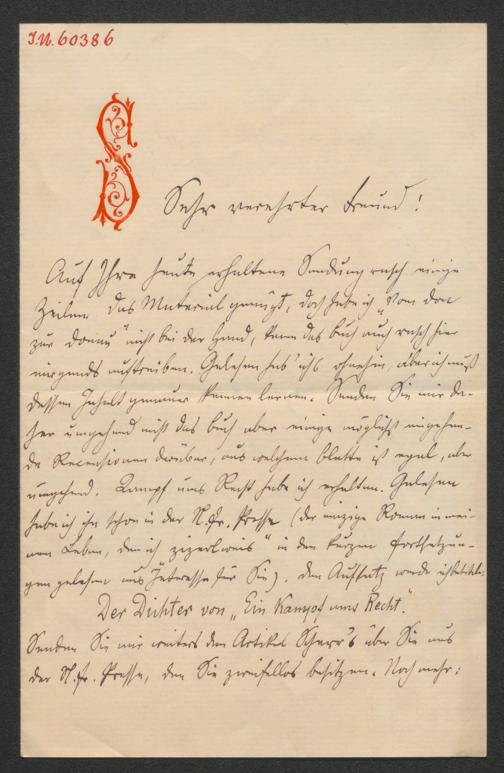 I.N. 60386
S
Sehr verehrter Freund!
Auf Ihre heute erhaltene Sendung rasch einige
Zeilen. Das Material genügt, doch habe ich „Vom Don
zur Donau" nicht bei der Hand, kann das Buch auch rasch hier
nirgends auftreiben. Gelesen hab' ich's ohnehin, aber ich muß
dessen Inhalt genauer kennen lernen. Senden Sie mir da-
her umgehend nicht das Buch aber einige möglichst eingehen-
de Recensionen darüber, aus welchem Blatte ist egal, aber
umgehend. Kampf ums Recht habe ich erhalten. Gelesen
habe ich ihn schon in der N. fr. Presse (der einzige Roman in mei-
nem Leben, den ich in den kurzen Fortsetzun-
gen gelesen aus Interesse für Sie). Den Aufsatz werde ich
Der Dichter von „Ein Kampf ums Recht".
Senden Sie mir weiters den Artikel Scherr's über Sie aus
der N. fr. Presse, den Sie zweifellos besitzen. Noch mehr: